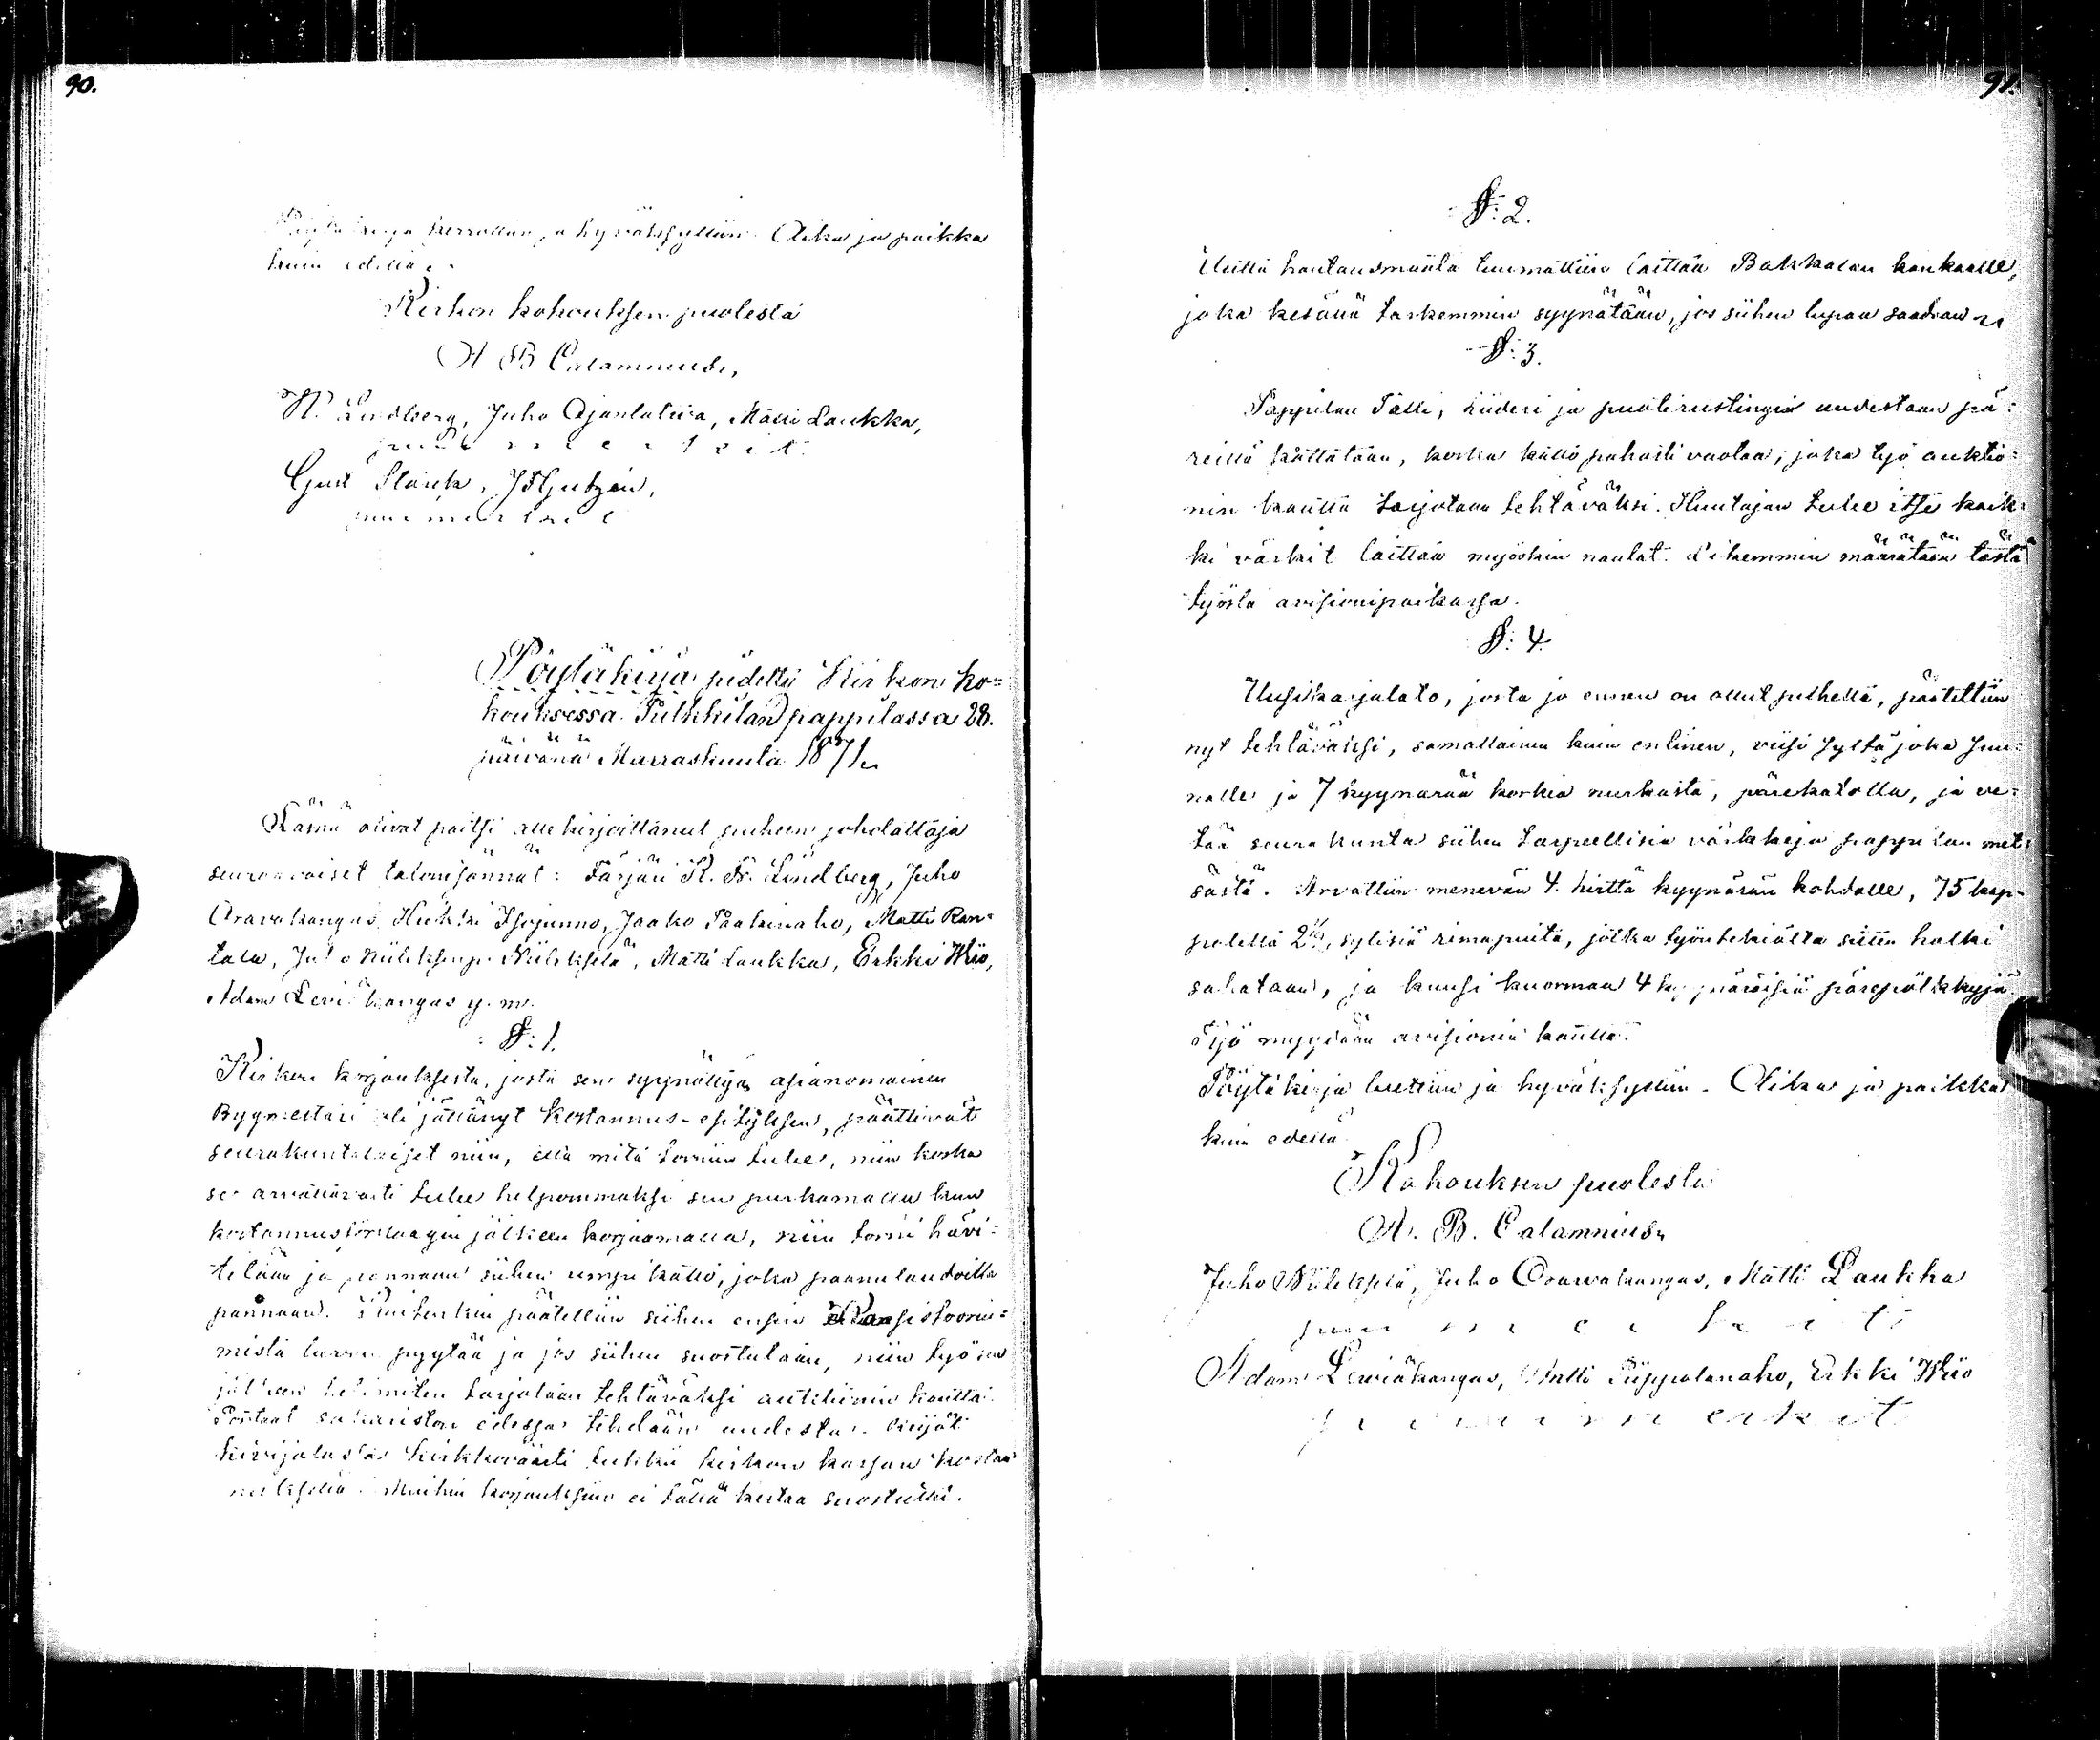 90.
kerrottiin ja hyväksyttiin. Aika ja paikka
kuin edellä.
Kirkon kokouksen puolesta
A B Calamnius,
K. Lindberg, Juho Ajanlatiwa, Matti Laukka,
puumerkit.
Gust Starck, J Ljutzén,
puumerkit
Pöytäkirja pidetty Kirkon ko=
kouksessa Pulkkilan pappilassa 28.
päivänä Marraskuuta 1871.
Läsnä olivat paitsi allekirjoittanut puheen johdattaja
seuraavaiset talonisännät: Färjäri K. Fr. Lindberg, Juho
Oravakangas, Heikki Isojunno, Jaako Paakinaho, Matti Ran=
tala, Juho Niileksenp. Niilekselä, Matti Laukka, Erkki Wiio,
Adam Leviäkangas y. m.
§: 1.
Kirkon korjauksesta, josta sen syynättyä asianomainen
Bygmestari oli jättänyt kostannus-esityksen, päättivät
seurakuntalaiset niin, että mitä torniin tulee, niin koska
se arvattavasti tulee helpommaksi sen purkamalla kuin
kostannusförslaagin jälkeen korjaamalla, niin torni hävi=
tetään ja pannaan siihen umpi kattö, joka paanulaudoilla
pannaan. Kuitenkin päätettiin siihen ensin Konsistoriu=
mista luvan pyytää ja jos siihen suostutaan, niin työ sen
jälkeen tarjotaan tehtäväksi auktionin kautta.
Portaat sakariston edessä tehdään uudesta.
kivijalassa kirkkoväärti kirkon kassan kostan
nuksella. Muihin korjauksiin ei tällä kertaa suostuttu.
91.
§: 2.
Uutta hautausmaata tuumattiin laittaa Bakkalan kankaalle,
joka kesänä tarkemmin syynätään, jos siihen lupaa saadaan
§: 3.
Pappilan Talli, Liideri ja puolirustingin uudestaan pä=
reillä kattetaan, koska kattö pahasti vuotaa; joka työ auktio=
nin kautta tarjotaan tehtäväksi. Huutajan tulee itse kaik=
ki värkit laittaa myöskin naulat. Likemmin määrätään tästä
työstä avisionipaikassa.
§: 4.
Uusi karjalato, josta jo ennen on ollut puhetta, päätettiin
nyt tehtäväksi, samallainen kuin entinen, viisi syltä joka suu=
nalle ja 7 kyynärää korkia nurkasta, pärekatolla, ja ve=
tää seurakunta siihen tarpeellisia värkkejä pappilan met=
sästä. Arvattiin menevän 4. hirttä kyynärän kohdalle, 75 kap=
paletta 2½ sylisiä rimapuita, jotka työntekiältä sitten halki
sahataan, ja kuusi kuormaa 4 kyynäräisiä pärepölkkyjä.
Työ myydään avisionin kautta.
Pöytäkirja luettiin ja hyväksyttiin. Aika ja paikka
kuin edellä
Kokouksen puolesta
A. B. Calamnius
Juho Niileksela, Juho Oravakangas, Matti Laukka
puumerkit
Adam Leviäkangas, Antti Piippolanaho, Erkki Wiio
puumerkit